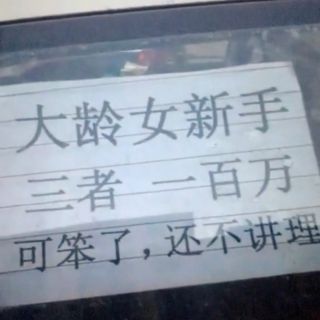 大龄女新手
三者 一百万
可笨了，还不讲理